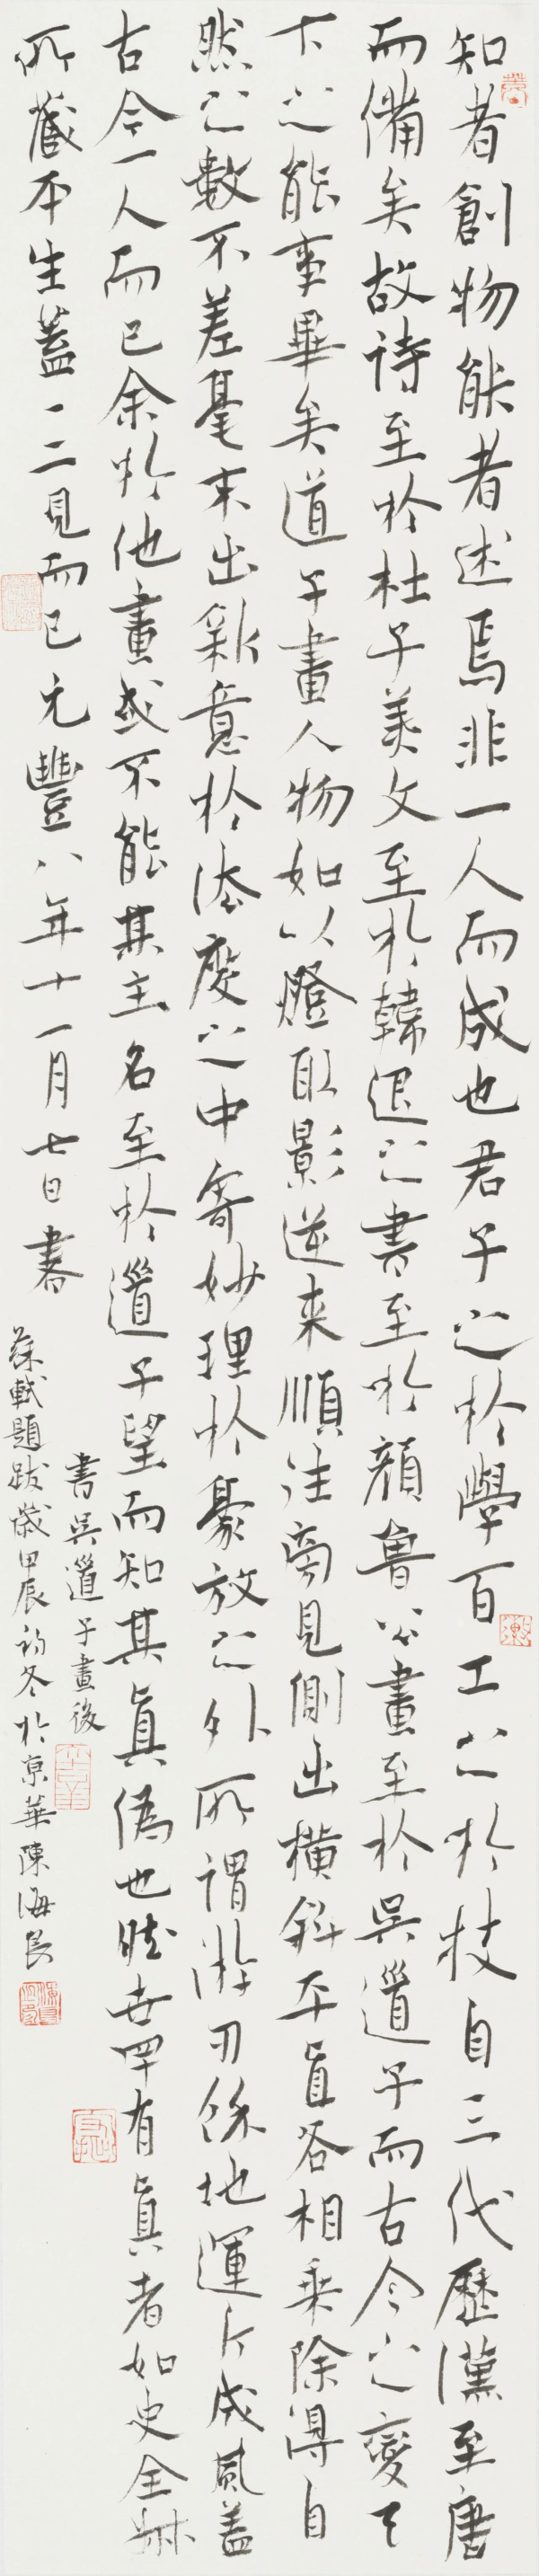 知者創物能者述焉非一人而成也君子之於學百工之於技自三代歷漢至唐
而備矣故詩至於杜子美文至於韓退之書至於顏魯公畫至於吳道子而古今之變天
下之能事畢矣道子畫人物如以燈取影逆來順往旁見側出橫斜平直各相乘除得自
然之數不差毫末出新意於法度之中寄妙理於豪放之外所謂游刃餘地運斤成風蓋
古今一人而已余於他畫或不能其主名至於道子望而知其真偽也然世罕有真者如史全叔
所藏平生蓋一二見而已元豐八年十一月七日書
書吳道子畫後
蘇軾題跋歲甲辰初冬於京華陳海良